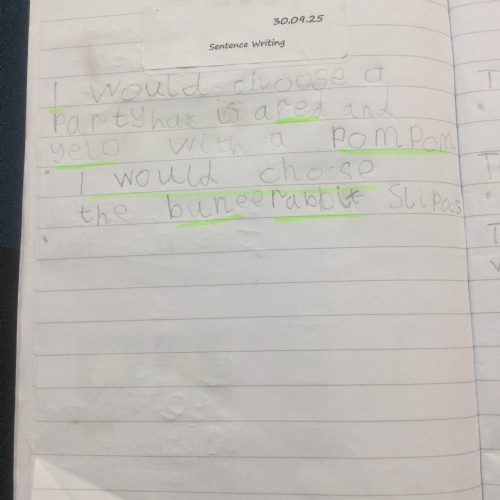 30.09.25
Sentence Writing
I would choose a
Partyhat is ared and
yelo with a pompom
I would choose
the buneerabbit Slipas